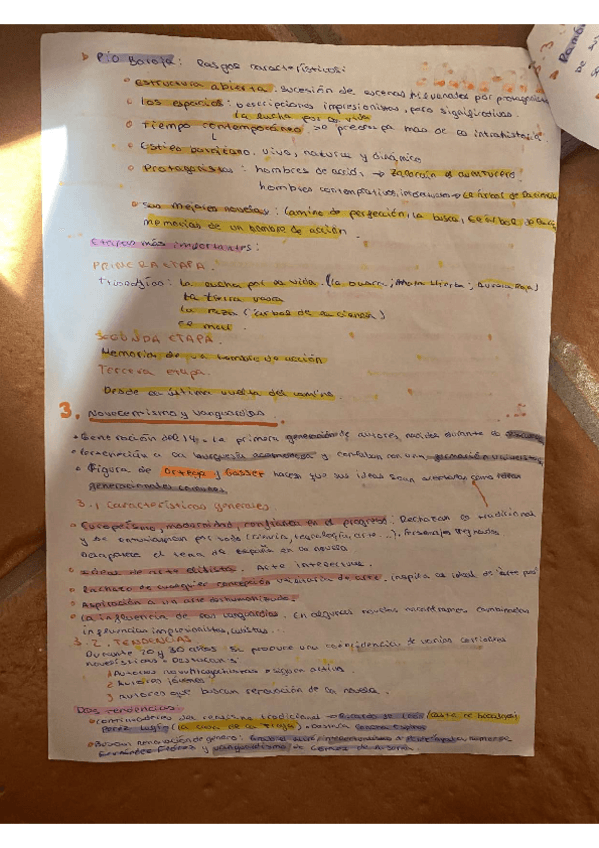 Pío Baroja: Rasgos característicos:
Estructura abierta. Sucesión de escenas
Los espacios: Descripciones impresionistas, pero significativas.
La lucha por la vida
Tiempo contemporáneo → preocupa más de la intrahistoria
Estilo barojiano. vivo, natural y dinámico
Protagonistas: hombres de acción → Zalacaín el aventurero
hombres contemplativos, → El árbol de la ciencia
Sus mejores novelas: Camino de perfección, La busca, El árbol
memorias de un hombre de acción.
Etapas más importantes:
PRIMERA ETAPA.
Trilogías: La lucha por la vida. (La busca; Mala hierba; Aurora roja)
La tierra vasca
La raza (árbol de la ciencia)
El mar.
SEGUNDA ETAPA.
Memorias de un hombre de acción
Tercera etapa.
Desde la última vuelta del camino.
3. Novecentismo y vanguardias
Generación del 14. La primera generación de autores, nacidos durante
a la burguesía acomodada y contaban con una formación universitaria
Figura de Ortega y Gasset hacen que sus ideas sean como
generacionales comunes.
3.1 Características generales.
Europeísmo, modernidad, confianza en el progreso: Rechazan lo tradicional
y se entusiasman por todo (ciencia, tecnología, arte...). Personajes
Desaparece el tema de España en la novela
Ideal de arte elitista. Arte intelectual.
Rechazo de cualquier concepción utilitaria de arte. inspira al ideal de arte puro
Aspiración a un arte deshumanizado.
La influencia de las vanguardias. En algunas novelas encontramos
influencias impresionistas, cubistas...
3.2. TENDENCIAS
Durante 20 y 30 años se produce una coincidencia de varias corrientes
novelísticas. Destacan:
siguen activos.
2 Autores jóvenes
3 autores que buscan renovación de la novela.
Dos tendencias.
Continuadores del realismo tradicional → Ricardo León
Pérez Lugín (La casa de la Troya). Destaca Concha Espina
Buscan renovación de género: Gabriel Miró
Fernández Flórez y vanguardismo de Gómez de la Serna